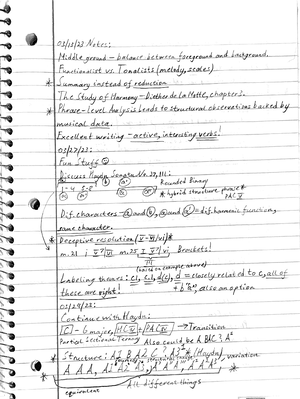 03/13/23 Notes:
Middle ground - balance between foreground and background.
Functionalist vs. Tonalists (melody, scales)
* Summary instead of reduction
The Study of Harmony - Diether de la Motte, chapter 1.
* Phrase-Level Analysis leads to structural observations backed by
musical data.
Excellent writing - active, interesting verbs!
03/27/23:
Fun Stuff
Discuss Haydn Sonata No. 37, III:
Rounded Binary
1-4 5-8
* hybrid structure phrase *
PAC V
Dif. characters - a and b, a and a' = dif. harmonic function,
same character.
* Deceptive resolution (V - VI/vi) *
m. 21 i V7/VI m. 25 I V7/vi, Brackets!
(build on example above)
Labeling themes: c1, c(1), d(c), d = closely related to c, all of
these are right! + b'(c), also an option
03/29/23:
Continue with Haydn:
C - G major, HC V / PAC IV → Transition
Partial Sectional Ternary Also could be A B C? A'
* Structure: A1 B A2 C? A3 * (Haydn)
variation
A A A, A1 A2 A3, A A' A'', A A' A';
equivalent All different things